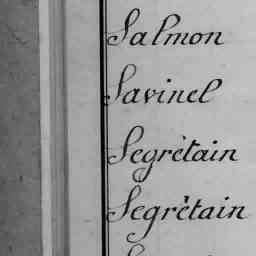 Salmon
Savinel
Segrètain
Segrètain